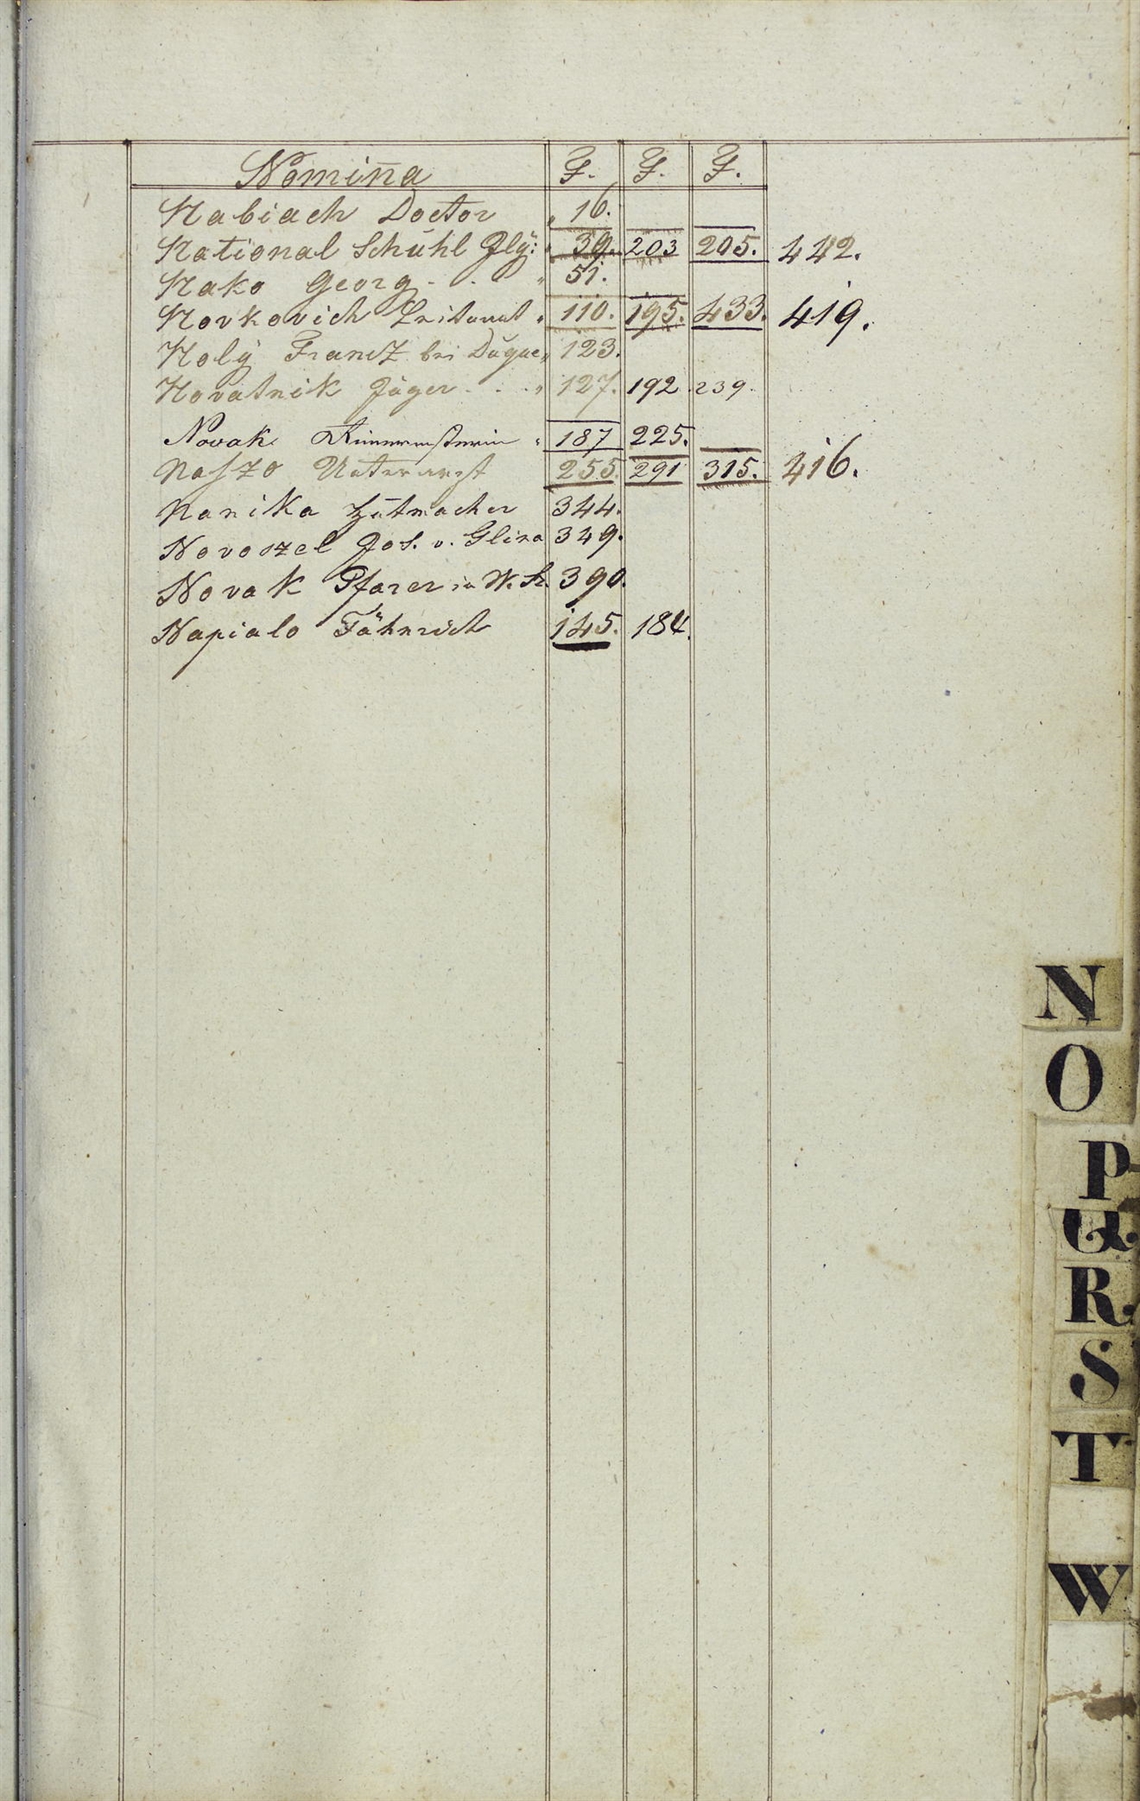 Nomina F. F. F.
Nabiach Doctor " 16.
National Schuhl Jlÿ: " 39. 203 205. 442.
Nako Georg - . " 51.
Novkovich Leitenant " 110. 195. 433. 419.
Nolÿ Francz bei " 123.
Novatnik Jäger . . . " 127. 192 239.
Novak " 187 225.
Naszo Unterarzt 255 291 315. 416.
Nanika Hutmacher 344.
Novoszel Jos. v. Glina 349.
Novak Pfarer in W. 390.
Napialo Fähnrich 145. 184.
N
O
P
Q
R
S
T
W